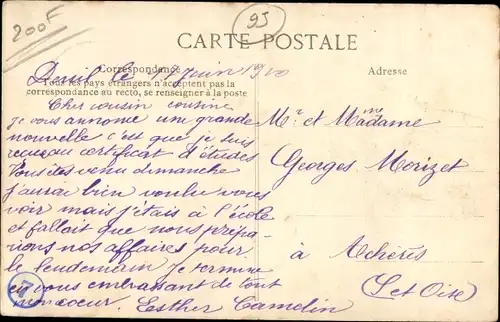 200F
95
CARTE POSTALE
Correspondance
Tous les pays étrangers n'acceptent pas la
correspondance au recto, se renseigner à la poste
le Juin 1910
Cher cousin cousine
je vous annonce une grande
nouvelle c'est que je suis
reçue au certificat d'études
Vous êtes venu dimanche
j'aurai bien voulu vous
voir mais j'étais à l'école
et fallait que nous prépa-
rions nos affaires pour
le lendemain je termine
en vous embrassant de tout
mon coeur. Esther Camelin
Adresse
Mr et Madame
Georges Morizet
à Achères
(S et Oise)